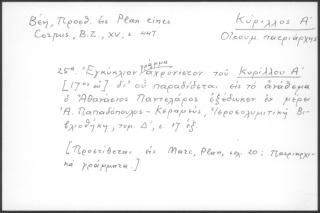 Βέη, Προσθ. εἰς Plan eines
Corpus, B.Z., XV, σ. 447
Κύριλλος Α´
Οἰκουμ. πατριάρχης
γράμμα
25α. Ἐγκύκλιον ἀχρόνιστον τοῦ Κυρίλλου Α´
[17ου αἰ.] δι' οὗ παραδίδεται εἰς τὸ ἀνάθεμα
ὁ Ἀθανάσιος Παντελάρος ἐξέδωκεν ἐν μέρει
Α. Παπαδόπουλος-Κεραμεύς, Ἱεροσολυμιτικὴ Βι-
βλιοθήκη, τομ. Δ´, σ. 17 ἑξ.
[Προστίθεται εἰς Marc, Plan, σελ. 20: Πατριαρχι-
κὰ γράμματα.]